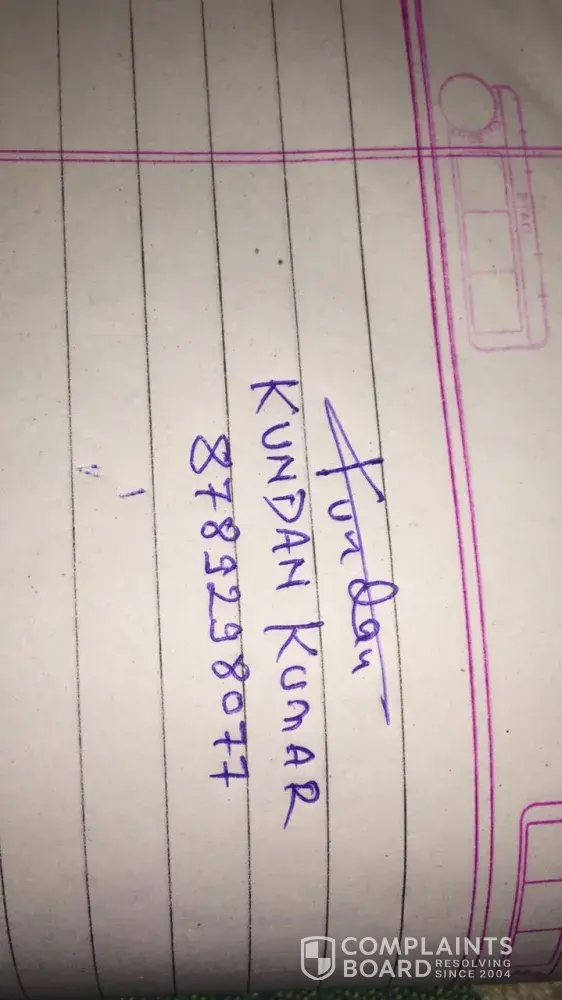 Kundan
KUNDAN KUMAR
8789298077
COMPLAINTS
BOARD RESOLVING
SINCE 2004